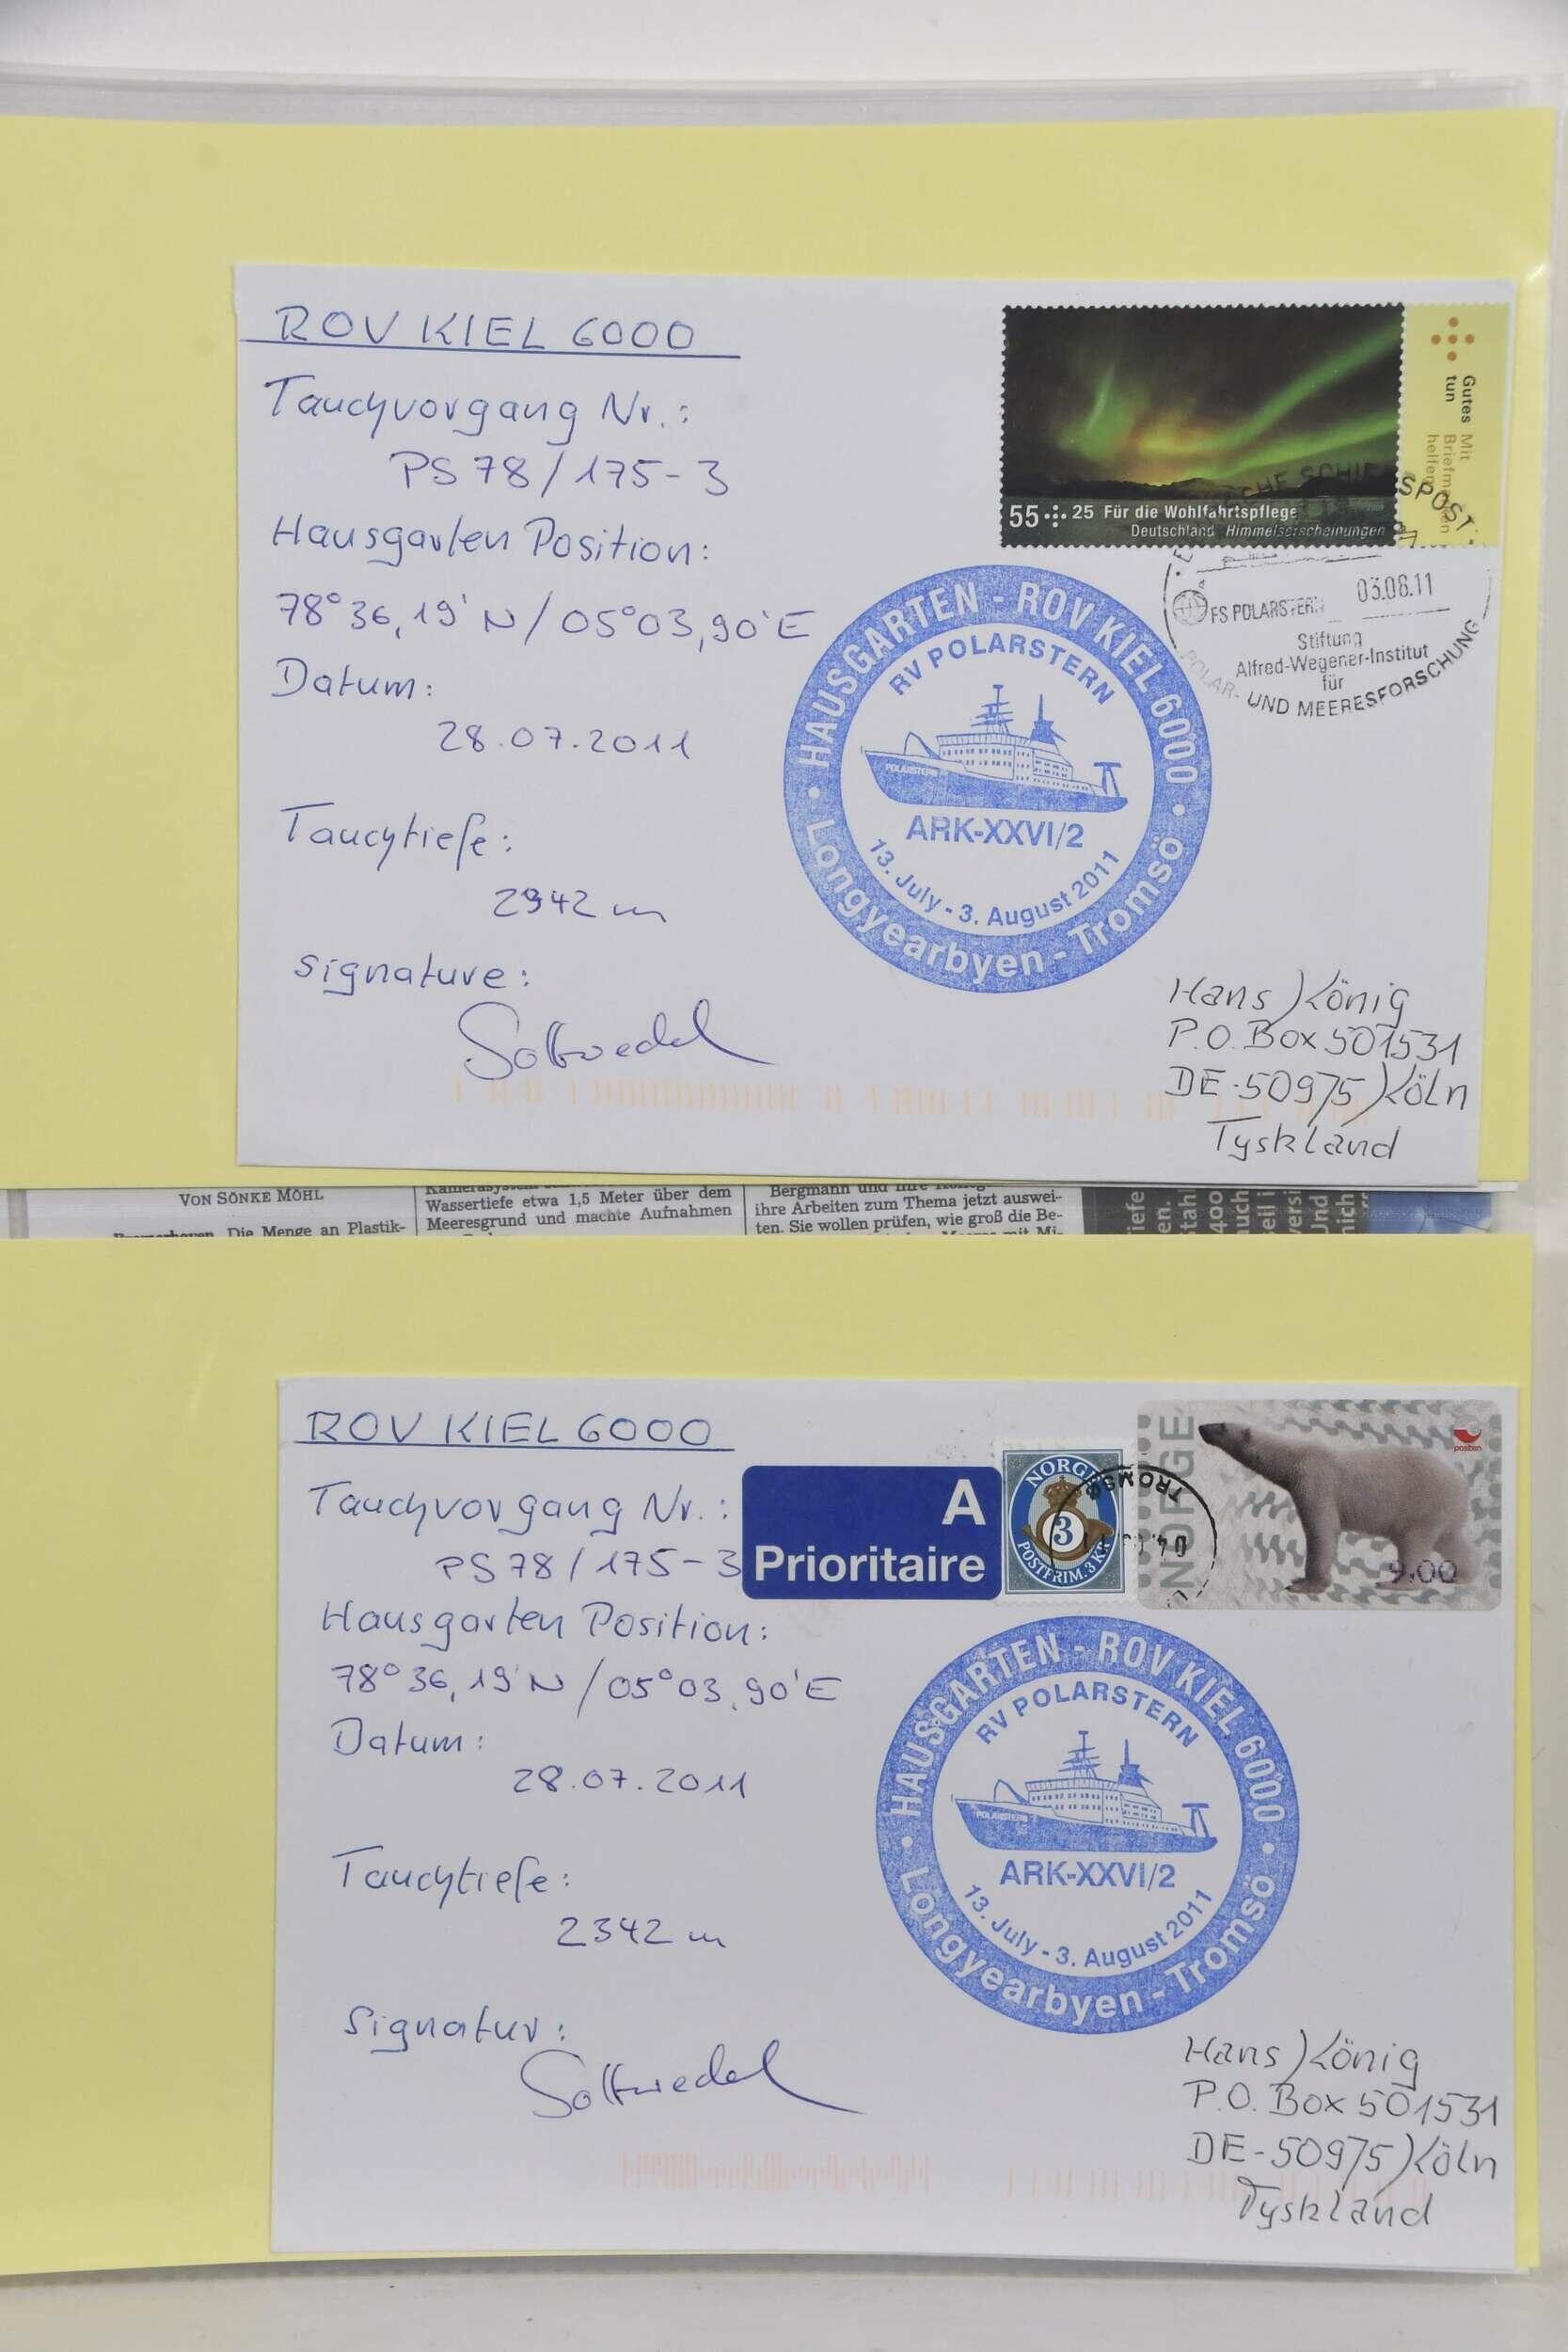 ROV KIEL 6000
Tauchvorgang Nr.:
PS 78 / 175-3
Hausgarten Position:
78° 36,19' N / 05° 03,90' E
Datum:
28.07.2011
Tauchtiefe:
2342 m
Signature:
Soltwedel
55 25 Für die Wohlfahrtspflege
Deutschland Himmelserscheinungen
Gutes tun
Mit Briefmarken helfen
SCHIFFSPOST
FS POLARSTERN
03.08.11
Stiftung
Alfred-Wegener-Institut
für
POLAR- UND MEERESFORSCHUNG
HAUSGARTEN - ROV KIEL 6000
RV POLARSTERN
POLARSTERN
ARK-XXVI/2
13. July - 3. August 2011
Longyearbyen - Tromsö
Hans König
P.O. Box 501531
DE-50975 Köln
Tyskland
VON SÖNKE MÖHL
Die Menge an Plastik-
Wassertiefe etwa 1,5 Meter über dem
Meeresgrund und machte Aufnahmen
Bergmann und ihre
ihre Arbeiten zum Thema jetzt auswei-
ten. Sie wollen prüfen, wie groß die Be-
ROV KIEL 6000
Tauchvorgang Nr.:
PS 78 / 175-3
Hausgarten Position:
78° 36,19' N / 05° 03,90' E
Datum:
28.07.2011
Tauchtiefe:
2342 m
Signatur:
Soltwedel
A
Prioritaire
NORGE
3
POSTFRIM. 3 KR
TROMSØ
NORGE
posten
9.00
HAUSGARTEN - ROV KIEL 6000
RV POLARSTERN
POLARSTERN
ARK-XXVI/2
13. July - 3. August 2011
Longyearbyen - Tromsö
Hans König
P.O. Box 501531
DE-50975 Köln
Tyskland